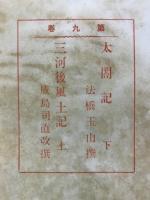 第九卷
太閤記 下
法橋玉山撰
三河後風土記 上
成島司直改撰